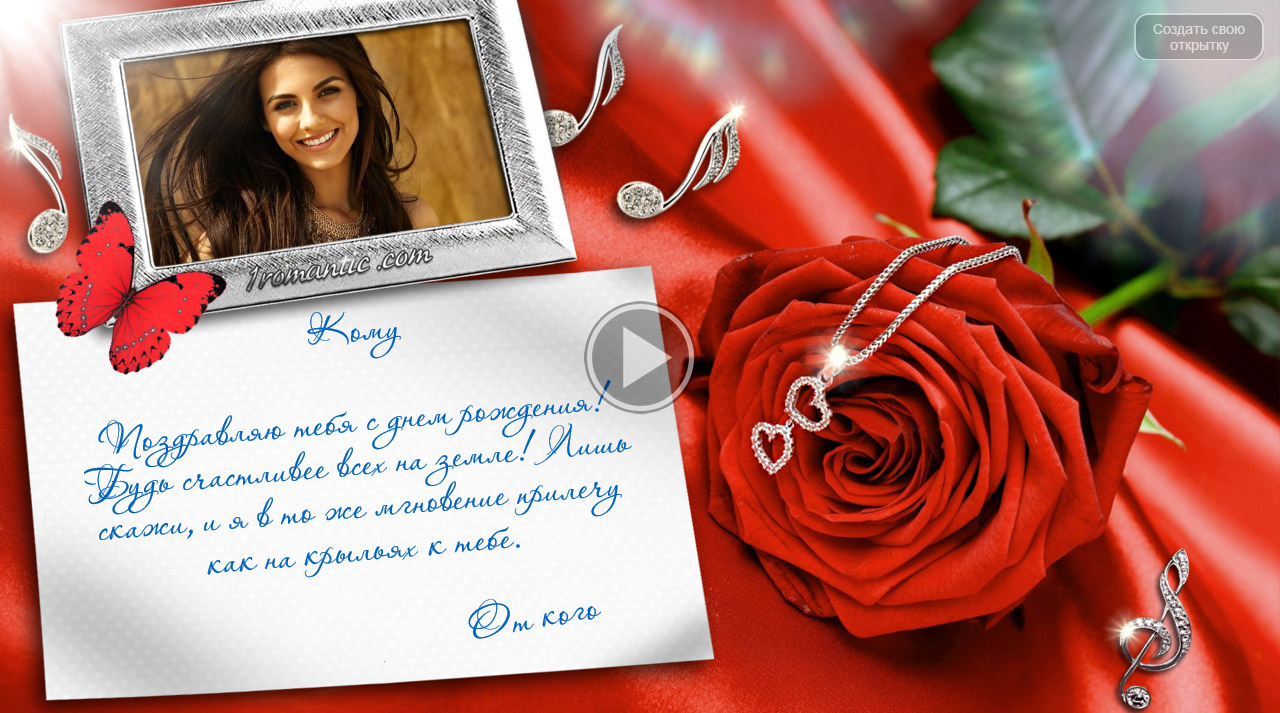 Создать свою
открытку
1romantic.com
Кому
Поздравляю тебя с днем рождения!
Будь счастливее всех на земле! Лишь
скажи, и я в то же мгновение прилечу
как на крыльях к тебе.
От кого